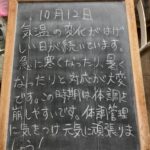 10月12日
気温の変化がはげ
しい日が続いています。
急に寒くなったり、暑く
なったりと対応が大変
です。この時期は体調を
崩しやすいです。体調管理
に気をつけ元気に頑張りま
しょう!